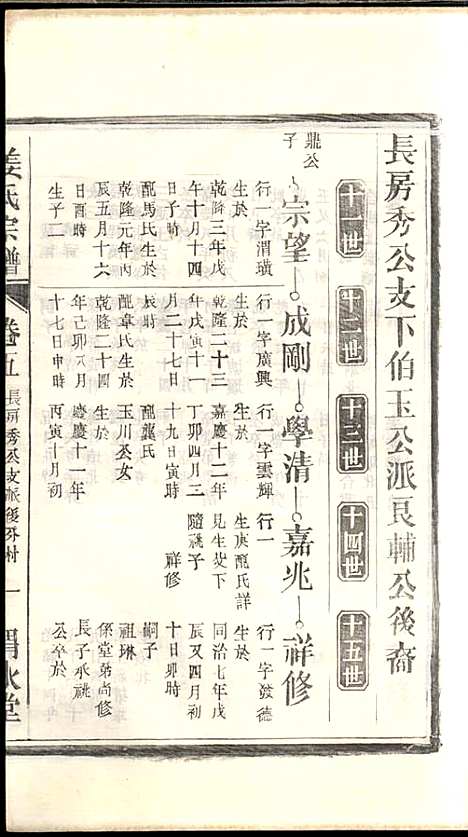 長房秀公支下伯玉公派良輔公後裔
十一世
十二世
十三世
十四世
十五世
鼎公子
宗望
成剛
學清
嘉兆
祥修
行一字渭璜
生於
乾隆三年戊
午十月十四
日子時
配馬氏生於
乾隆元年丙
辰五月十六
日酉時
生子二
行一字廣興
生於
乾隆二十三
年戊寅十一
月二十七日
辰時
配韋氏生於
乾隆二十四
年己卯八月
十七日申時
行一字雲輝
生於
嘉慶十二年
丁卯四月三
十九日寅時
配龔氏
玉川公女
生於
慶慶十一年
丙寅十月初
行一
生庚配氏詳
見生父下
隨祧子
祥修
行一字發德
生於
同治七年戊
辰又四月初
十日卯時
嗣子
祖琳
係堂弟尚修
長子承祧
公卒於
姜氏宗譜
卷五
長房秀公支派後外村
一
渭水堂